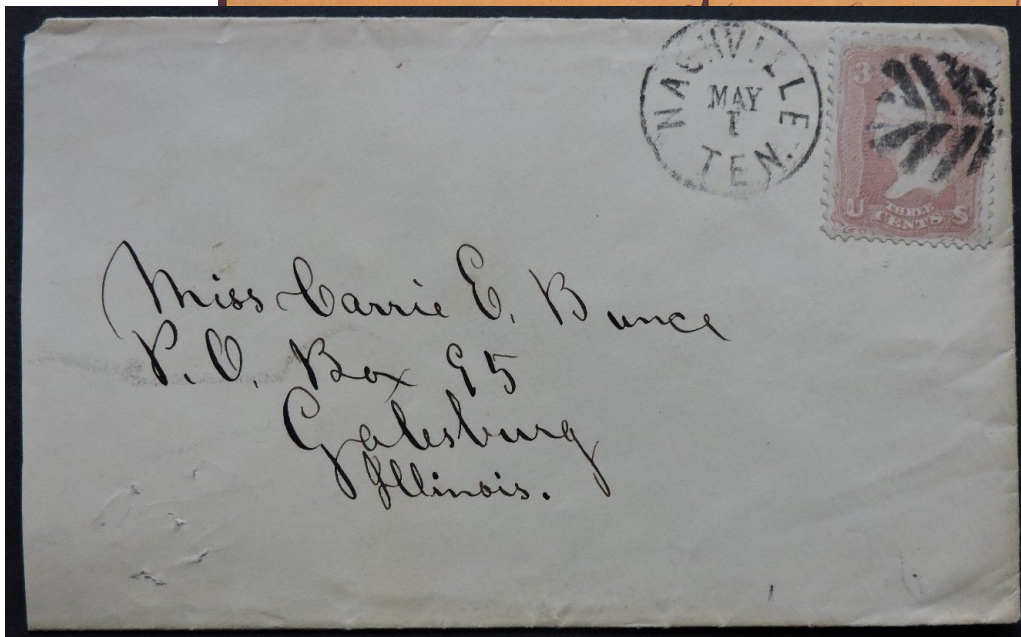 NASHVILLE
MAY
1
TEN.
3
U THREE CENTS S
Miss Carrie E. Bunce
P.O. Box 95
Galesburg
Illinois.